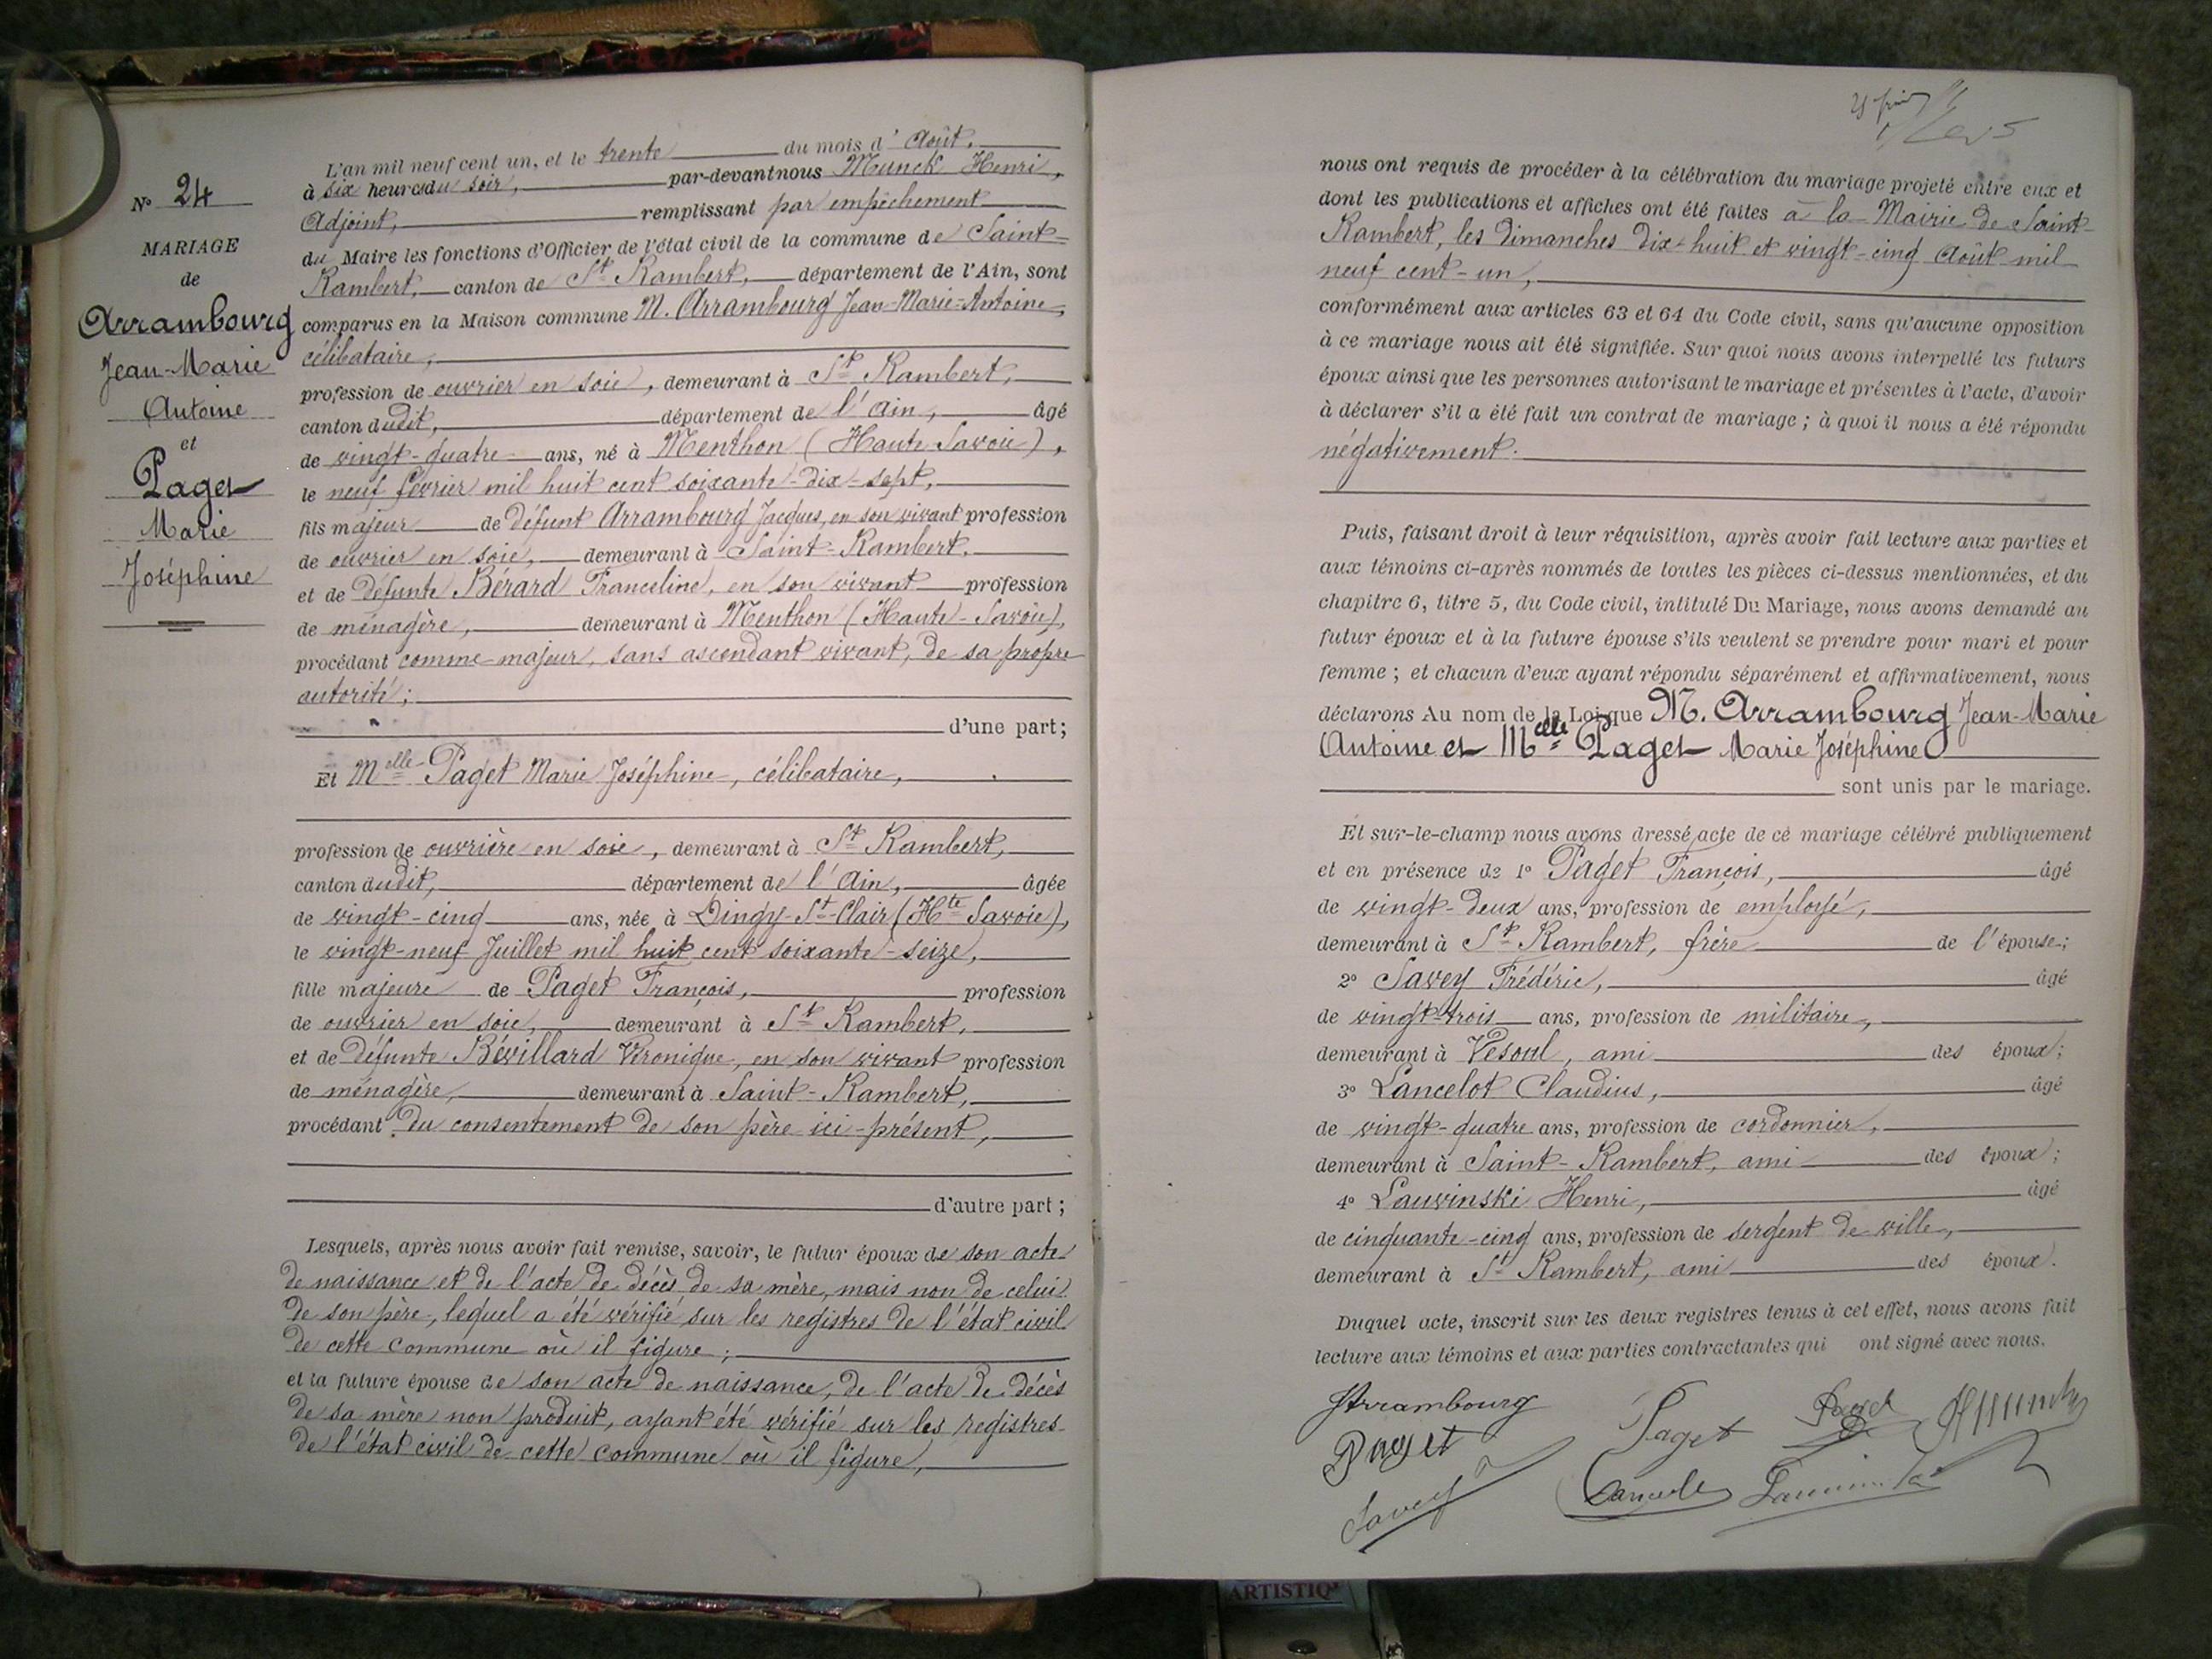 N° 24
MARIAGE
de
Arrambourg
Jean-Marie
Antoine
et
Paget
Marie
Joséphine
L'an mil neuf cent un, et le trente du mois d'Août,
à six heures du soir, par-devant nous Munck Henri,
Adjoint, remplissant par empêchement
du Maire les fonctions d'Officier de l'état civil de la commune de Saint-
Rambert, canton de St Rambert, département de l'Ain, sont
comparus en la Maison commune M. Arrambourg Jean-Marie-Antoine,
célibataire,
profession de ouvrier en soie, demeurant à St Rambert,
canton dudit, département de l'Ain, âgé
de vingt-quatre ans, né à Menthon (Haute-Savoie),
le neuf février mil huit cent soixante-dix-sept,
fils majeur de défunt Arrambourg Jacques, en son vivant profession
de ouvrier en soie, demeurant à Saint-Rambert,
et de défunte Bérard Franceline, en son vivant profession
de ménagère, demeurant à Menthon (Haute-Savoie),
procédant comme majeur, sans ascendant vivant, de sa propre
autorité;
d'une part;
Et Melle Paget Marie Joséphine, célibataire,
profession de ouvrière en soie, demeurant à St Rambert,
canton dudit, département de l'Ain, âgée
de vingt-cinq ans, née à Dingy-St-Clair (Hte Savoie),
le vingt-neuf Juillet mil huit cent soixante-seize,
fille majeure de Paget François, profession
de ouvrier en soie, demeurant à St Rambert,
et de défunte Bévillard Véronique, en son vivant profession
de ménagère, demeurant à Saint-Rambert,
procédant du consentement de son père ici-présent,
d'autre part;
Lesquels, après nous avoir fait remise, savoir, le futur époux de son acte
de naissance et de l'acte de décès de sa mère, mais non de celui
de son père, lequel a été vérifié sur les registres de l'état civil
de cette commune où il figure;
et la future épouse de son acte de naissance, de l'acte de décès
de sa mère non produit, ayant été vérifié sur les registres
de l'état civil de cette commune où il figure,
nous ont requis de procéder à la célébration du mariage projeté entre eux et
dont les publications et affiches ont été faites à la Mairie de Saint-
Rambert, les dimanches dix-huit et vingt-cinq Août mil
neuf cent-un,
conformément aux articles 63 et 64 du Code civil, sans qu'aucune opposition
à ce mariage nous ait été signifiée. Sur quoi nous avons interpellé les futurs
époux ainsi que les personnes autorisant le mariage et présentes à l'acte, d'avoir
à déclarer s'il a été fait un contrat de mariage; à quoi il nous a été répondu
négativement.
Puis, faisant droit à leur réquisition, après avoir fait lecture aux parties et
aux témoins ci-après nommés de toutes les pièces ci-dessus mentionnées, et du
chapitre 6, titre 5, du Code civil, intitulé Du Mariage, nous avons demandé au
futur époux et à la future épouse s'ils veulent se prendre pour mari et pour
femme; et chacun d'eux ayant répondu séparément et affirmativement, nous
déclarons Au nom de la Loi que M. Arrambourg Jean-Marie
Antoine et Melle Paget Marie Joséphine
sont unis par le mariage.
Et sur-le-champ nous avons dressé acte de ce mariage célébré publiquement
et en présence de 1° Paget François, âgé
de vingt-deux ans, profession de employé,
demeurant à St Rambert, frère de l'épouse;
2° Savey Frédéric, âgé
de vingt-trois ans, profession de militaire,
demeurant à Vesoul, ami des époux;
3° Lancelot Claudius, âgé
de vingt-quatre ans, profession de cordonnier,
demeurant à Saint-Rambert, ami des époux;
4° Lauvinski Henri, âgé
de cinquante-cinq ans, profession de sergent de ville,
demeurant à St Rambert, ami des époux.
Duquel acte, inscrit sur les deux registres tenus à cet effet, nous avons fait
lecture aux témoins et aux parties contractantes qui ont signé avec nous.
Arrambourg
Paget Paget
Paget
Savey
ARTISTIQ